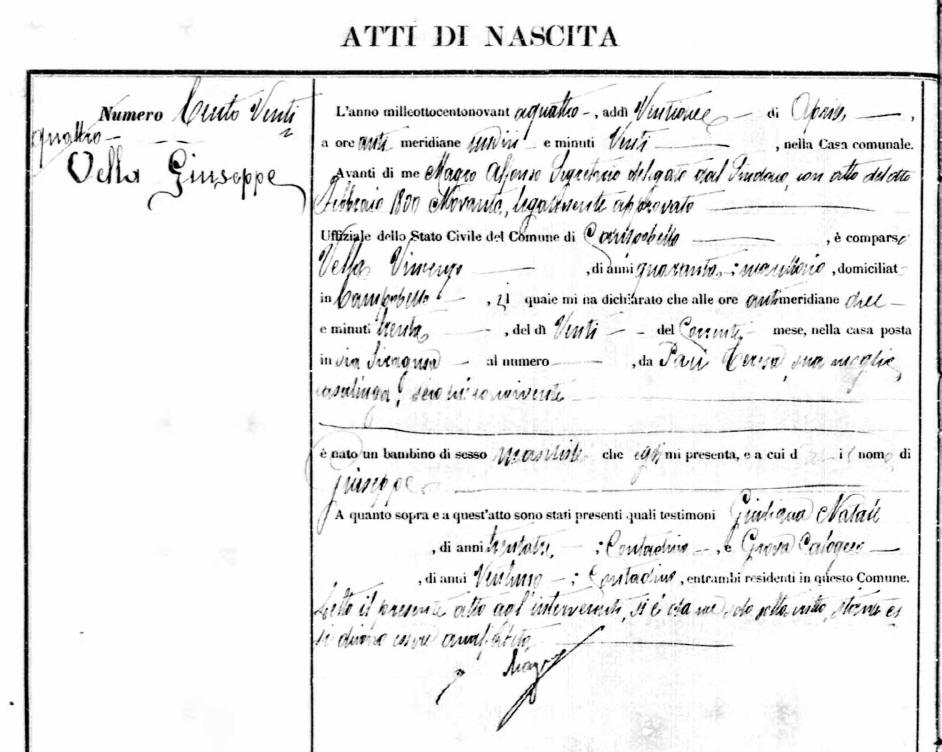 ATTI DI NASCITA
Numero Cento Venti
quattro
Vella Giuseppe
L'anno milleottocentonovant aquattro, addì Ventitre di Aprile,
a ore anti meridiane undici e minuti Venti, nella Casa comunale.
Avanti di me Magro Alfonso Segretario delegato dal Sindaco, con atto del
Febbraio 1800 Novanta, legalmente approvato
Uffiziale dello Stato Civile del Comune di Campobello, è comparso
Vella Vincenzo, di anni quaranta, domiciliat
in Campobello, il quale mi ha dichiarato che alle ore antimeridiane
e minuti trenta, del dì Venti del Corrente mese, nella casa posta
in via Siragusa al numero, da Pari Teresa, sua moglie,
casalinga, seco lui convivente
è nato un bambino di sesso maschile che egli mi presenta, e a cui d il nome di
Giuseppe
A quanto sopra e a quest'atto sono stati presenti quali testimoni Giuliana Natale
, di anni trentatre, Contadino, e Calogero
, di anni Ventuno, Contadino, entrambi residenti in questo Comune.
Letto il presente atto agl'intervenuti, si è da me solo sottoscritto,
si dicono essere analfabeti
Magro